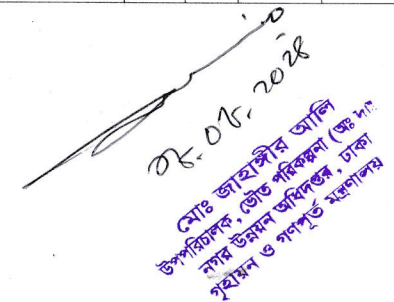 মোঃ জাহাঙ্গীর আলি
উপপরিচালক, ভৌত পরিকল্পনা (অঃ দাঃ
নগর উন্নয়ন অধিদপ্তর, ঢাকা
গৃহায়ন ও গণপূর্ত মন্ত্রণালয়